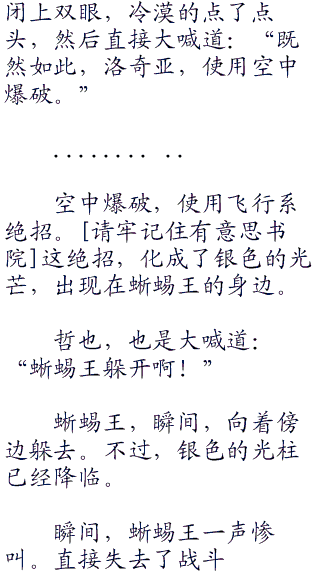 闭上双眼，冷漠的点了点
头，然后直接大喊道：“既
然如此，洛奇亚，使用空中
爆破。”
........ ..
空中爆破，使用飞行系
绝招。[请牢记住有意思书
院]这绝招，化成了银色的光
芒，出现在蜥蜴王的身边。
哲也，也是大喊道：
“蜥蜴王躲开啊！”
蜥蜴王，瞬间，向着傍
边躲去。不过，银色的光柱
已经降临。
瞬间，蜥蜴王一声惨
叫。直接失去了战斗